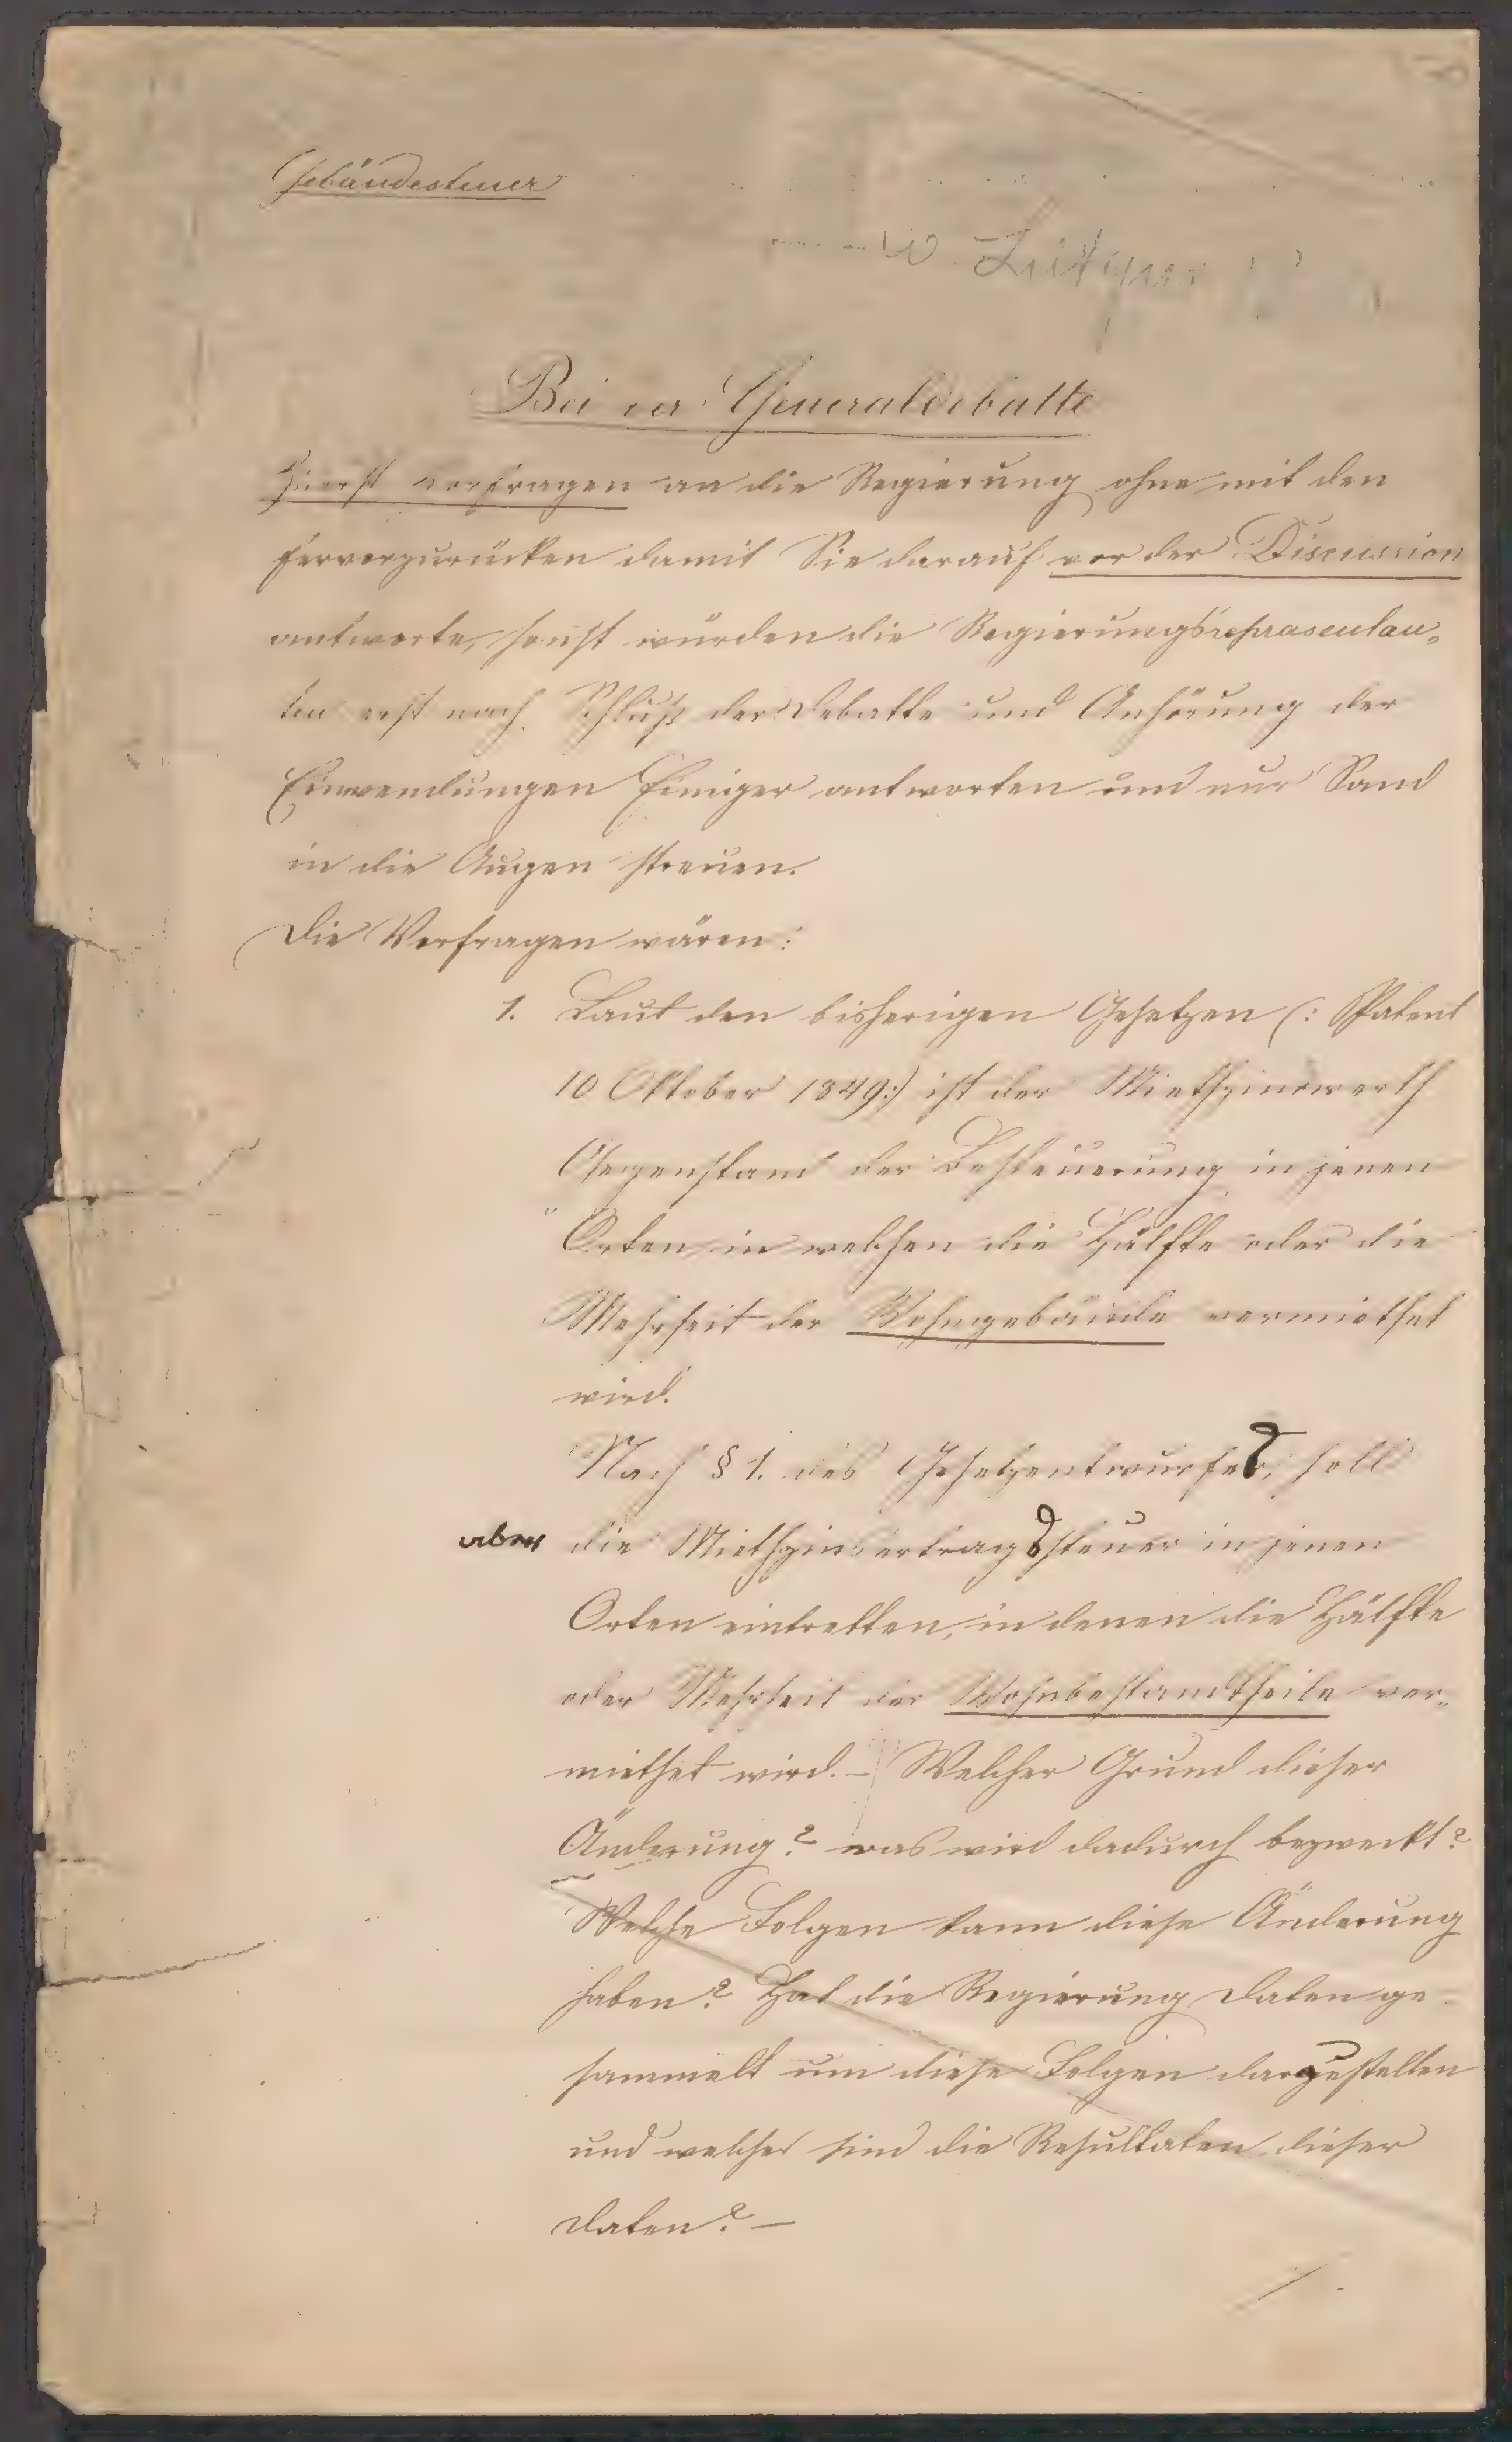 Gebäudesteuer
Bei der Generaldebatte
Zuerst vorfragen an die Regierung ohne mit den
hervorzurücken damit Sie darauf vor der Discussion
antworte, sonst würden die Regierungsrepräsentan-
ten erst nach Schluß der Debatte und Anhörung der
Einwendungen Einiger antworten und nur Sand
in die Augen streuen.
Die Vorfragen wären:
1. Laut den bisherigen Gesetzen (: Patent
10 Oktober 1849 :) ist der Miethzinswerth
Gegenstand der Besteuerung in jenen
Orten in welchen die Hälfte oder die
Mehrheit der Wohngebäude vermiethet
wird.
Nach § 1. des Gesetzentwurfes, soll
aber die Miethzinsertragssteuer in jenen
Orten eintretten, in denen die Hälfte
oder Mehrheit der Wohnbestandtheile ver-
miethet wird. — Welcher Grund dieser
Änderung? was wird dadurch bezweckt?
Welche Folgen kann diese Änderung
haben? Hat die Regierung Daten ge-
sammelt um diese Folgen darzustellen
und welches sind die Resultaten dieser
Daten? —